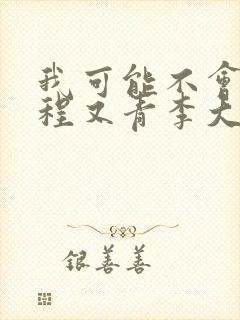 我可能不會
程又青李大
银善善